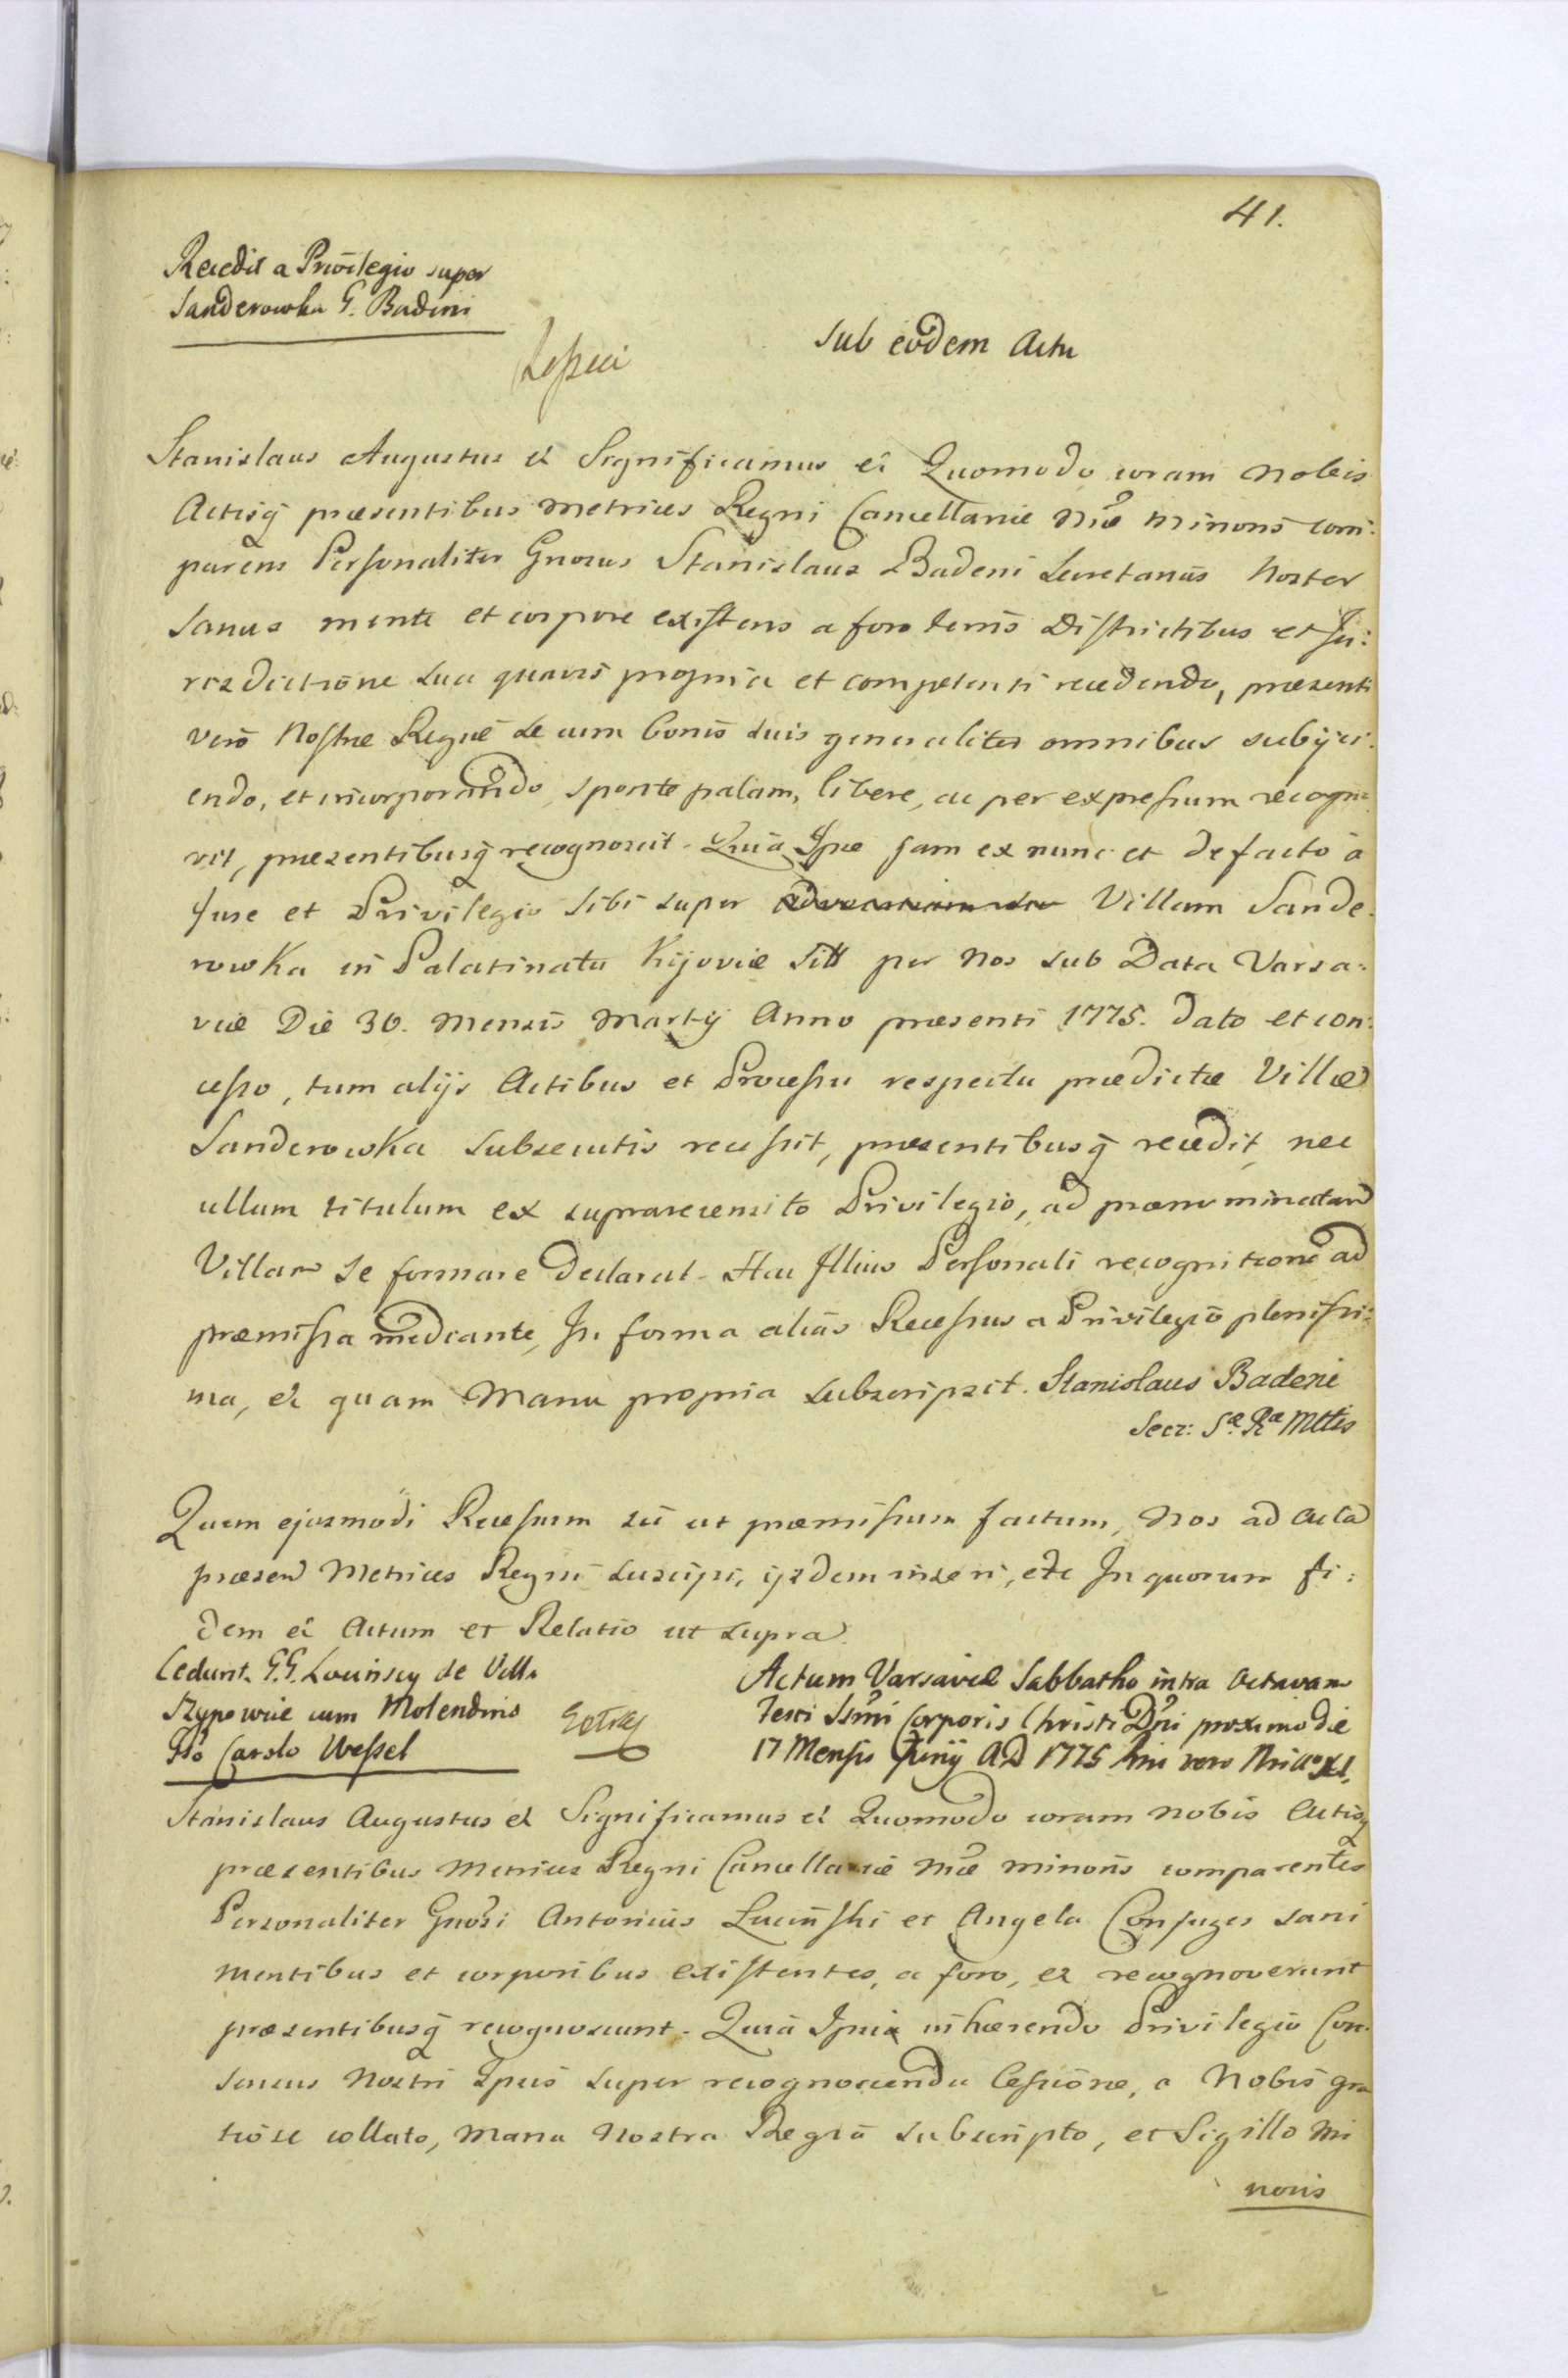 41.
Recedit a Privilegio super
Sanderowka G. Badini
Sub eodem Actu
Stanislaus Augustus et Significamus et Quomodo coram Nobis
Actisq̃ præsentibus Metrices Regni Cancellariæ Nræ Minoris com:
parens Personaliter Gnosus Stanislaus Badeni Secretarius Noster
Sanus mente et corpore existens a foro terris Districtibus et Ju:
risdictione sua quavis propria et competenti recedendo, præsenti
vero Nostræ Regiæ se cum bonis suis generaliter omnibus subijci:
endo, et incorporando, sponte palam, libere, ac per expressum recogno:
vit, præsentibusq̃ recognoscit. Quia Ipse jam ex nunc et de facto à
Jure et Privilegio sibi super Villam Sande:
rowka in Palatinatu Kijoviæ Sitt per Nos sub Data Varsa:
viæ Die 30. Mensis Martij Anno præsenti 1775. dato et con:
cesso, tum alijs Actibus et Processu respectu prædictæ Villæ
Sanderowka subsecutis recessit, præsentibusq̃ recedit, nec
ullum titulum ex suprarecensito Privilegio, ad prænominatam
Villam se formare declarat. Hac Illius Personali recognitione ad
præmissa mediante, In forma alias Recessus a Privilegio plenissi:
ma, et quam Manu propria subscripsit. Stanislaus Badeni
Secr: Sæ Ræ Mttis
Quem ejusmodi Recessum sic ut præmissum factum, Nos ad Acta
præsen Metrices Regni suscipi, ijsdem inseri, etc In quorum fi:
dem et Actum et Relatio ut supra.
Cedunt G.G. Lucinscy de Villa
Szypowie cum Molendino
Gso Carolo Wessel
Actum Varsaviæ Sabbatho intra Octavam
Festi Ssmi Corporis Christi Dni proximo die
17 Mensis Junij AD 1775
Stanislaus Augustus et Significamus et Quomodo coram Nobis Actisq̃
præsentibus Metrices Regni Cancellariæ Nræ minoris comparentes
Personaliter Gnosi Antonius Lucinski et Angela Conjuges sani
mentibus et corporibus existentes, a foro, et recognoverunt
præsentibusq̃ recognoscunt. Quia Ipsi inhærendo Privilegio Con:
sensus Nostri Ipsis super recognoscenda Cessione, a Nobis gra
tiose collato, Manu Nostra Regia subscripto, et Sigillo Mi
noris